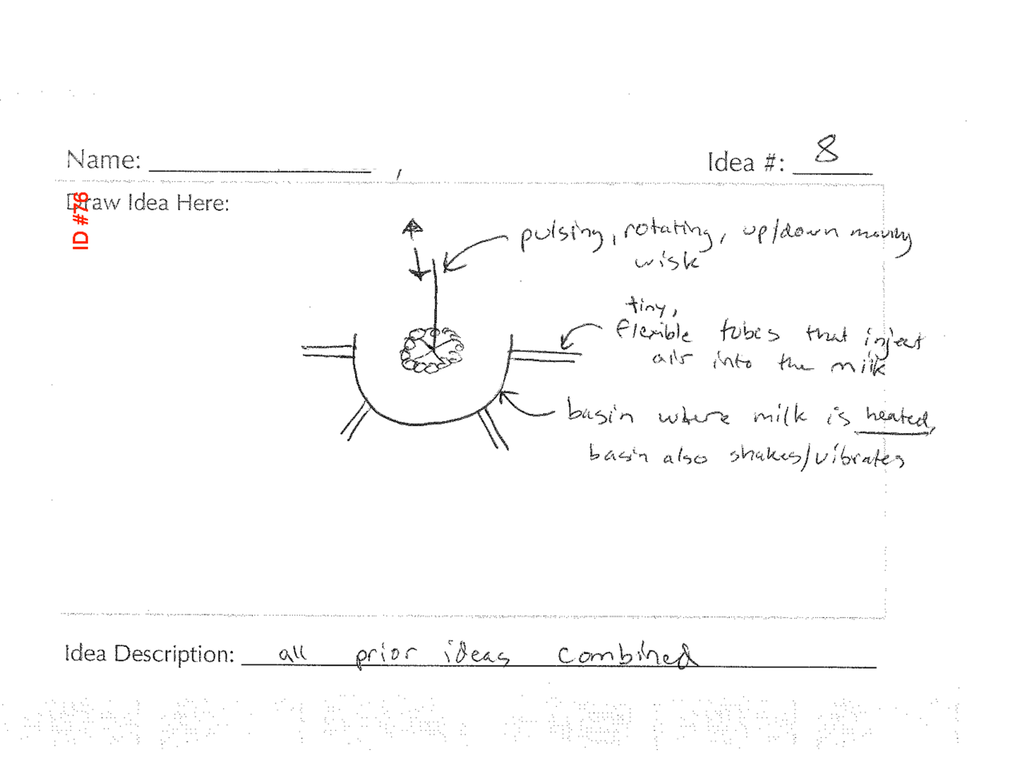 Name:
Idea #: 8
Draw Idea Here:
ID #76
pulsing, rotating, up/down moving
wisk
tiny,
flexible tubes that inject
air into the milk
basin where milk is heated,
basin also shakes/vibrates
Idea Description: all prior ideas combined